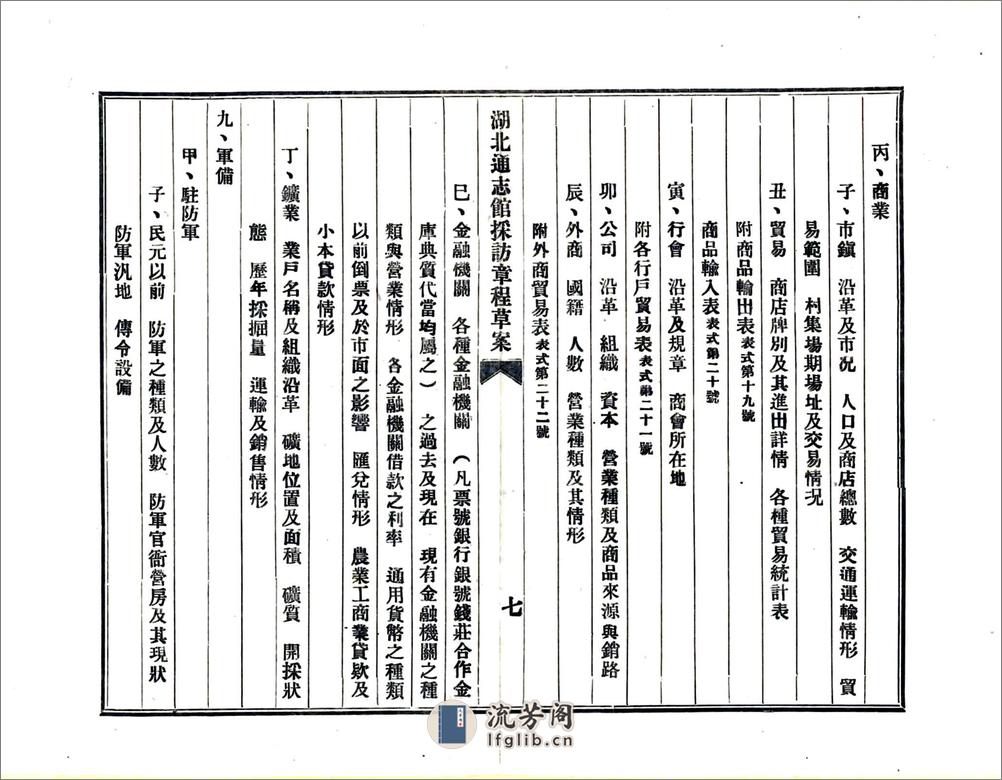 丙、商業
子、市鎮　沿革及市况　人口及商店總數　交通運輸情形　貿
易範圍　村集場期場址及交易情况
丑、貿易　商店牌別及其進出詳情　各種貿易統計表
附商品輸出表表式第十九號
商品輸入表表式第二十號
寅、行會　沿革及規章　商會所在地
附各行戶貿易表表式第二十一號
卯、公司　沿革　組織　資本　營業種類及商品來源與銷路
辰、外商　國籍　人數　營業種類及其情形
附外商貿易表表式第二十二號
湖北通志館採訪章程草案
七
巳、金融機關　各種金融機關　（凡票號銀行銀號錢莊合作金
庫典質代當均屬之）　之過去及現在　現有金融機關之種
類與營業情形　各金融機關借款之利率　通用貨幣之種類
以前倒票及於市面之影響　匯兌情形　農業工商業貸欵及
小本貸款情形
丁、鑛業　業戶名稱及組織沿革　礦地位置及面積　礦質　開採狀
態　歷年採掘量　運輸及銷售情形
九、軍備
甲、駐防軍
子、民元以前　防軍之種類及人數　防軍官衙營房及其現狀
防軍汛地　傳令設備
流芳阁
lfglib.cn